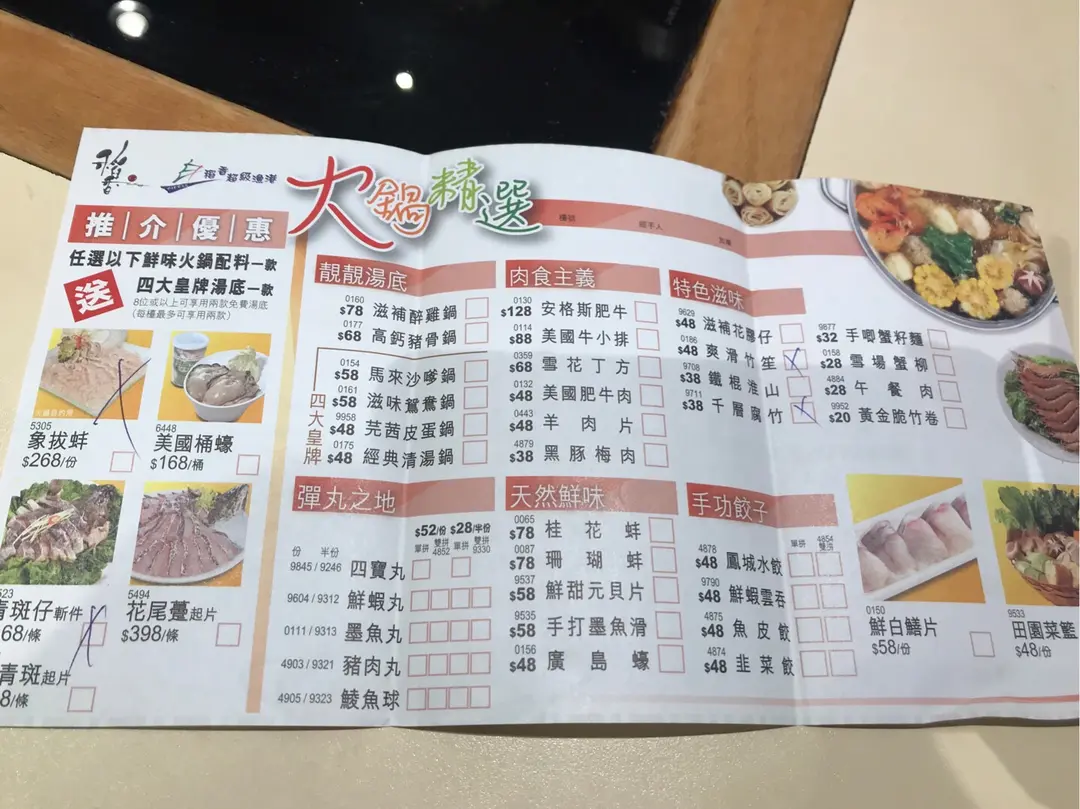 稻香
稻香超級漁港
火鍋精選
檯號
經手人
推介優惠
任選以下鮮味火鍋配料一款
送 四大皇牌湯底一款
8位或以上可享用兩款免費湯底
(每檯最多可享用兩款)
5305
象拔蚌
$268/份
6448
美國桶蠔
$168/桶
青斑仔斬件
68/條
5494
花尾躉起片
$398/條
青斑起片
8/條
靚靚湯底
0160
$78 滋補醉雞鍋
0177
$68 高鈣豬骨鍋
四大皇牌
0154
$58 馬來沙嗲鍋
0161
$58 滋味鴛鴦鍋
9958
$48 芫茜皮蛋鍋
0175
$48 經典清湯鍋
肉食主義
0130
$128 安格斯肥牛
0114
$88 美國牛小排
0359
$68 雪花丁方
0132
$48 美國肥牛肉
0443
$48 羊肉片
4879
$38 黑豚梅肉
特色滋味
9629
$48 滋補花膠仔
0186
$48 爽滑竹笙
9708
$38 鐵棍淮山
9711
$38 千層腐竹
9877
$32 手唧蟹籽麵
0158
$28 雪場蟹柳
4884
$28 午餐肉
9952
$20 黃金脆竹卷
彈丸之地
$52/份 $28/半份
份 半份 單拼 雙拼 4852 單拼 雙拼 9330
9845 / 9246 四寶丸
9604 / 9312 鮮蝦丸
0111 / 9313 墨魚丸
4903 / 9321 豬肉丸
4905 / 9323 鯪魚球
天然鮮味
0065
$78 桂花蚌
0087
$78 珊瑚蚌
9537
$58 鮮甜元貝片
9535
$58 手打墨魚滑
0156
$48 廣島蠔
手功餃子
單拼 4854 雙拼
4878
$48 鳳城水餃
9790
$48 鮮蝦雲吞
4875
$48 魚皮餃
4874
$48 韭菜餃
0150
鮮白鱔片
$58/份
9533
田園菜籃
$48/份